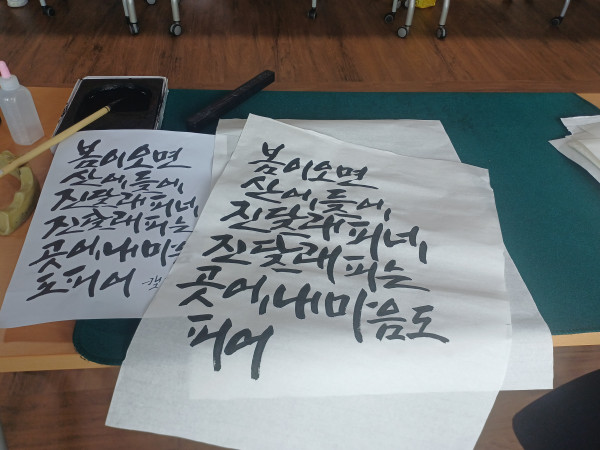 봄이오면
산에,들에,
진달래피네,
진달래피는
곳에,내마음
도피어
봄이오면
산에,들에,
진달래피네,
진달래피는
곳에,내마음도
피어